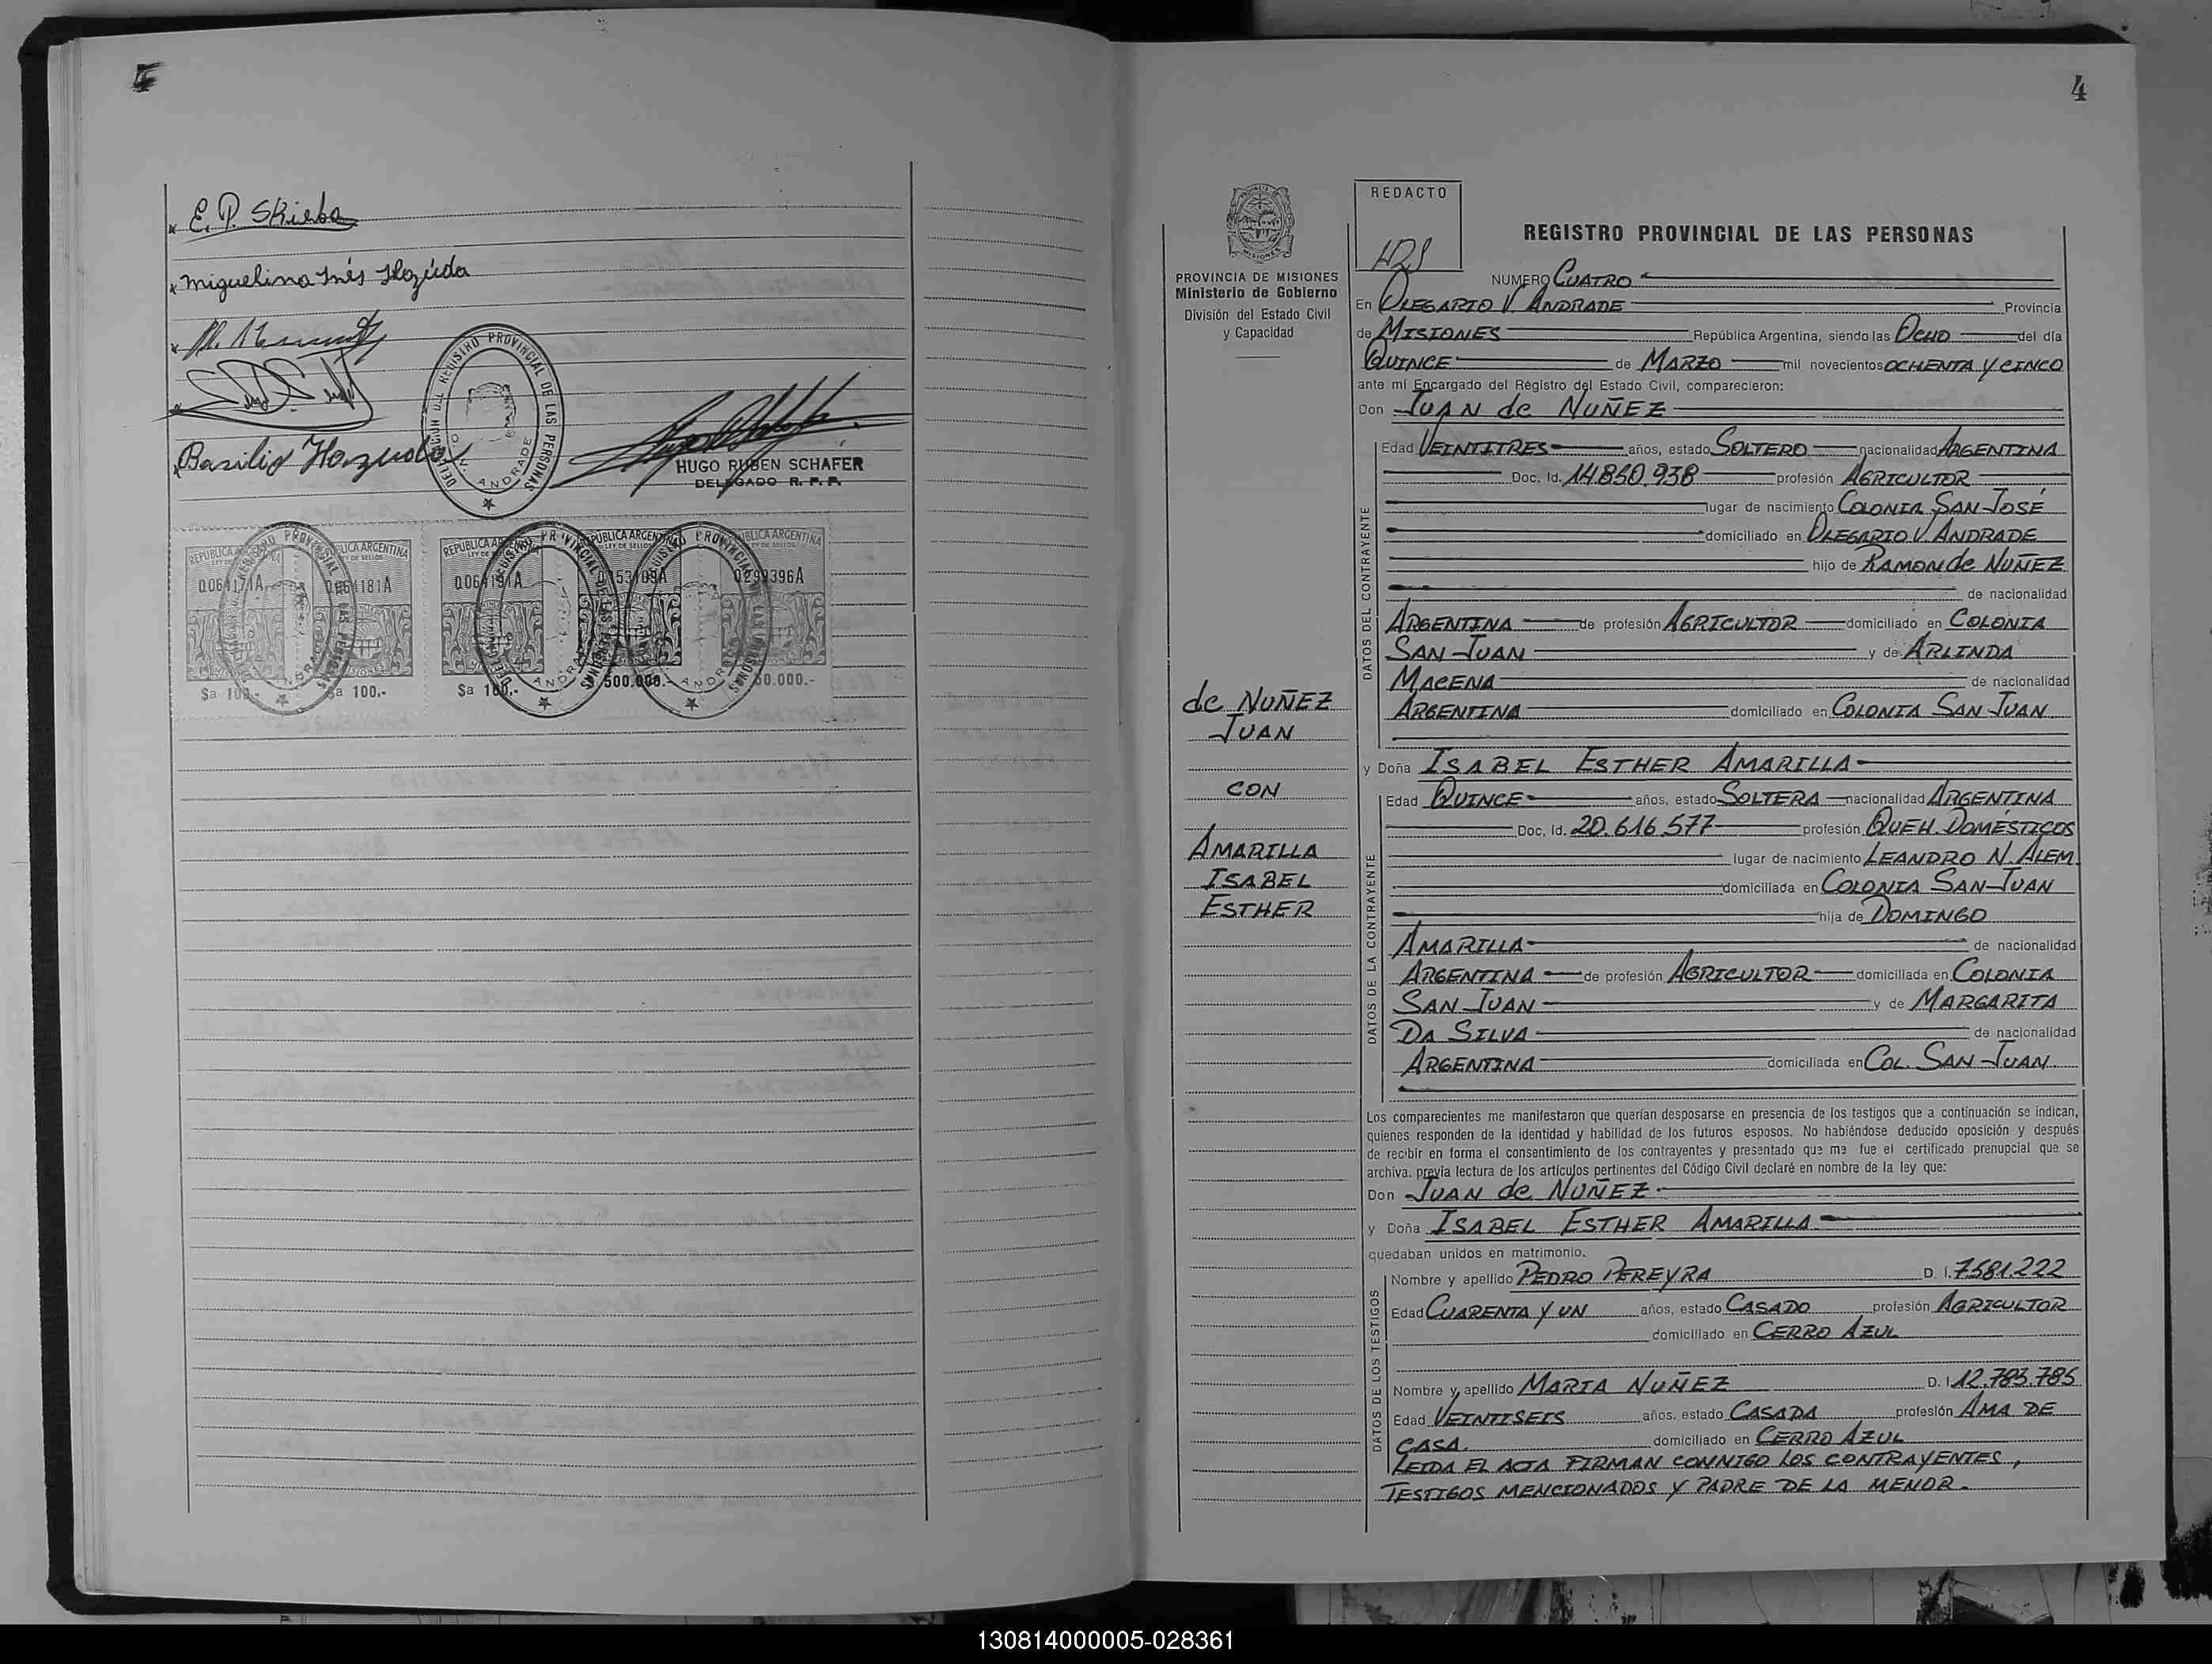 E. P. Skieba
Miguelina Inés
Basilio
DELEGACION DEL REGISTRO PROVINCIAL DE LAS PERSONAS
O. V. ANDRADE
HUGO RUBEN SCHAFER
DELEGADO R. P. P.
REPUBLICA ARGENTINA
LEY DE SELLOS
0064181A
0299396A
$a 100.-
$a 100.-
$a 100.-
500.000.-
50.000.-
4
PROVINCIA DE MISIONES
Ministerio de Gobierno
División del Estado Civil
y Capacidad
de NUÑEZ
JUAN
CON
AMARILLA
ISABEL
ESTHER
REDACTO
REGISTRO PROVINCIAL DE LAS PERSONAS
NUMERO CUATRO
En OLEGARIO V. ANDRADE Provincia
de MISIONES República Argentina, siendo las OCHO del día
QUINCE de MARZO mil novecientos OCHENTA Y CINCO
ante mí Encargado del Registro del Estado Civil, comparecieron:
Don JUAN de NUÑEZ
DATOS DEL CONTRAYENTE
Edad VEINTITRES años, estado SOLTERO nacionalidad ARGENTINA
Doc. Id. 14.850.938 profesión AGRICULTOR
lugar de nacimiento COLONIA SAN JOSÉ
domiciliado en OLEGARIO V. ANDRADE
hijo de RAMON de NUÑEZ
de nacionalidad
ARGENTINA de profesión AGRICULTOR domiciliado en COLONIA
SAN JUAN y de ARLINDA
MACENA de nacionalidad
ARGENTINA domiciliado en COLONIA SAN JUAN
y Doña ISABEL ESTHER AMARILLA
DATOS DE LA CONTRAYENTE
Edad QUINCE años, estado SOLTERA nacionalidad ARGENTINA
Doc. Id. 20.616.577 profesión QUEH. DOMÉSTICOS
lugar de nacimiento LEANDRO N. ALEM
domiciliada en COLONIA SAN JUAN
hija de DOMINGO
AMARILLA de nacionalidad
ARGENTINA de profesión AGRICULTOR domiciliada en COLONIA
SAN JUAN y de MARGARITA
DA SILVA de nacionalidad
ARGENTINA domiciliada en COL. SAN JUAN
Los comparecientes me manifestaron que querían desposarse en presencia de los testigos que a continuación se indican,
quienes responden de la identidad y habilidad de los futuros esposos. No habiéndose deducido oposición y después
de recibir en forma el consentimiento de los contrayentes y presentado que me fue el certificado prenupcial que se
archiva. previa lectura de los artículos pertinentes del Código Civil declaré en nombre de la ley que:
Don JUAN de NUÑEZ
y Doña ISABEL ESTHER AMARILLA
quedaban unidos en matrimonio.
DATOS DE LOS TESTIGOS
Nombre y apellido PEDRO PEREYRA D. I. 7.581.222
Edad CUARENTA Y UN años, estado CASADO profesión AGRICULTOR
domiciliado en CERRO AZUL
Nombre y apellido MARIA NUÑEZ D. I. 12.783.785
Edad VEINTISEIS años. estado CASADA profesión AMA DE
CASA. domiciliado en CERRO AZUL
LEIDA EL ACTA FIRMAN CONMIGO LOS CONTRAYENTES,
TESTIGOS MENCIONADOS Y PADRE DE LA MENOR.
130814000005-028361